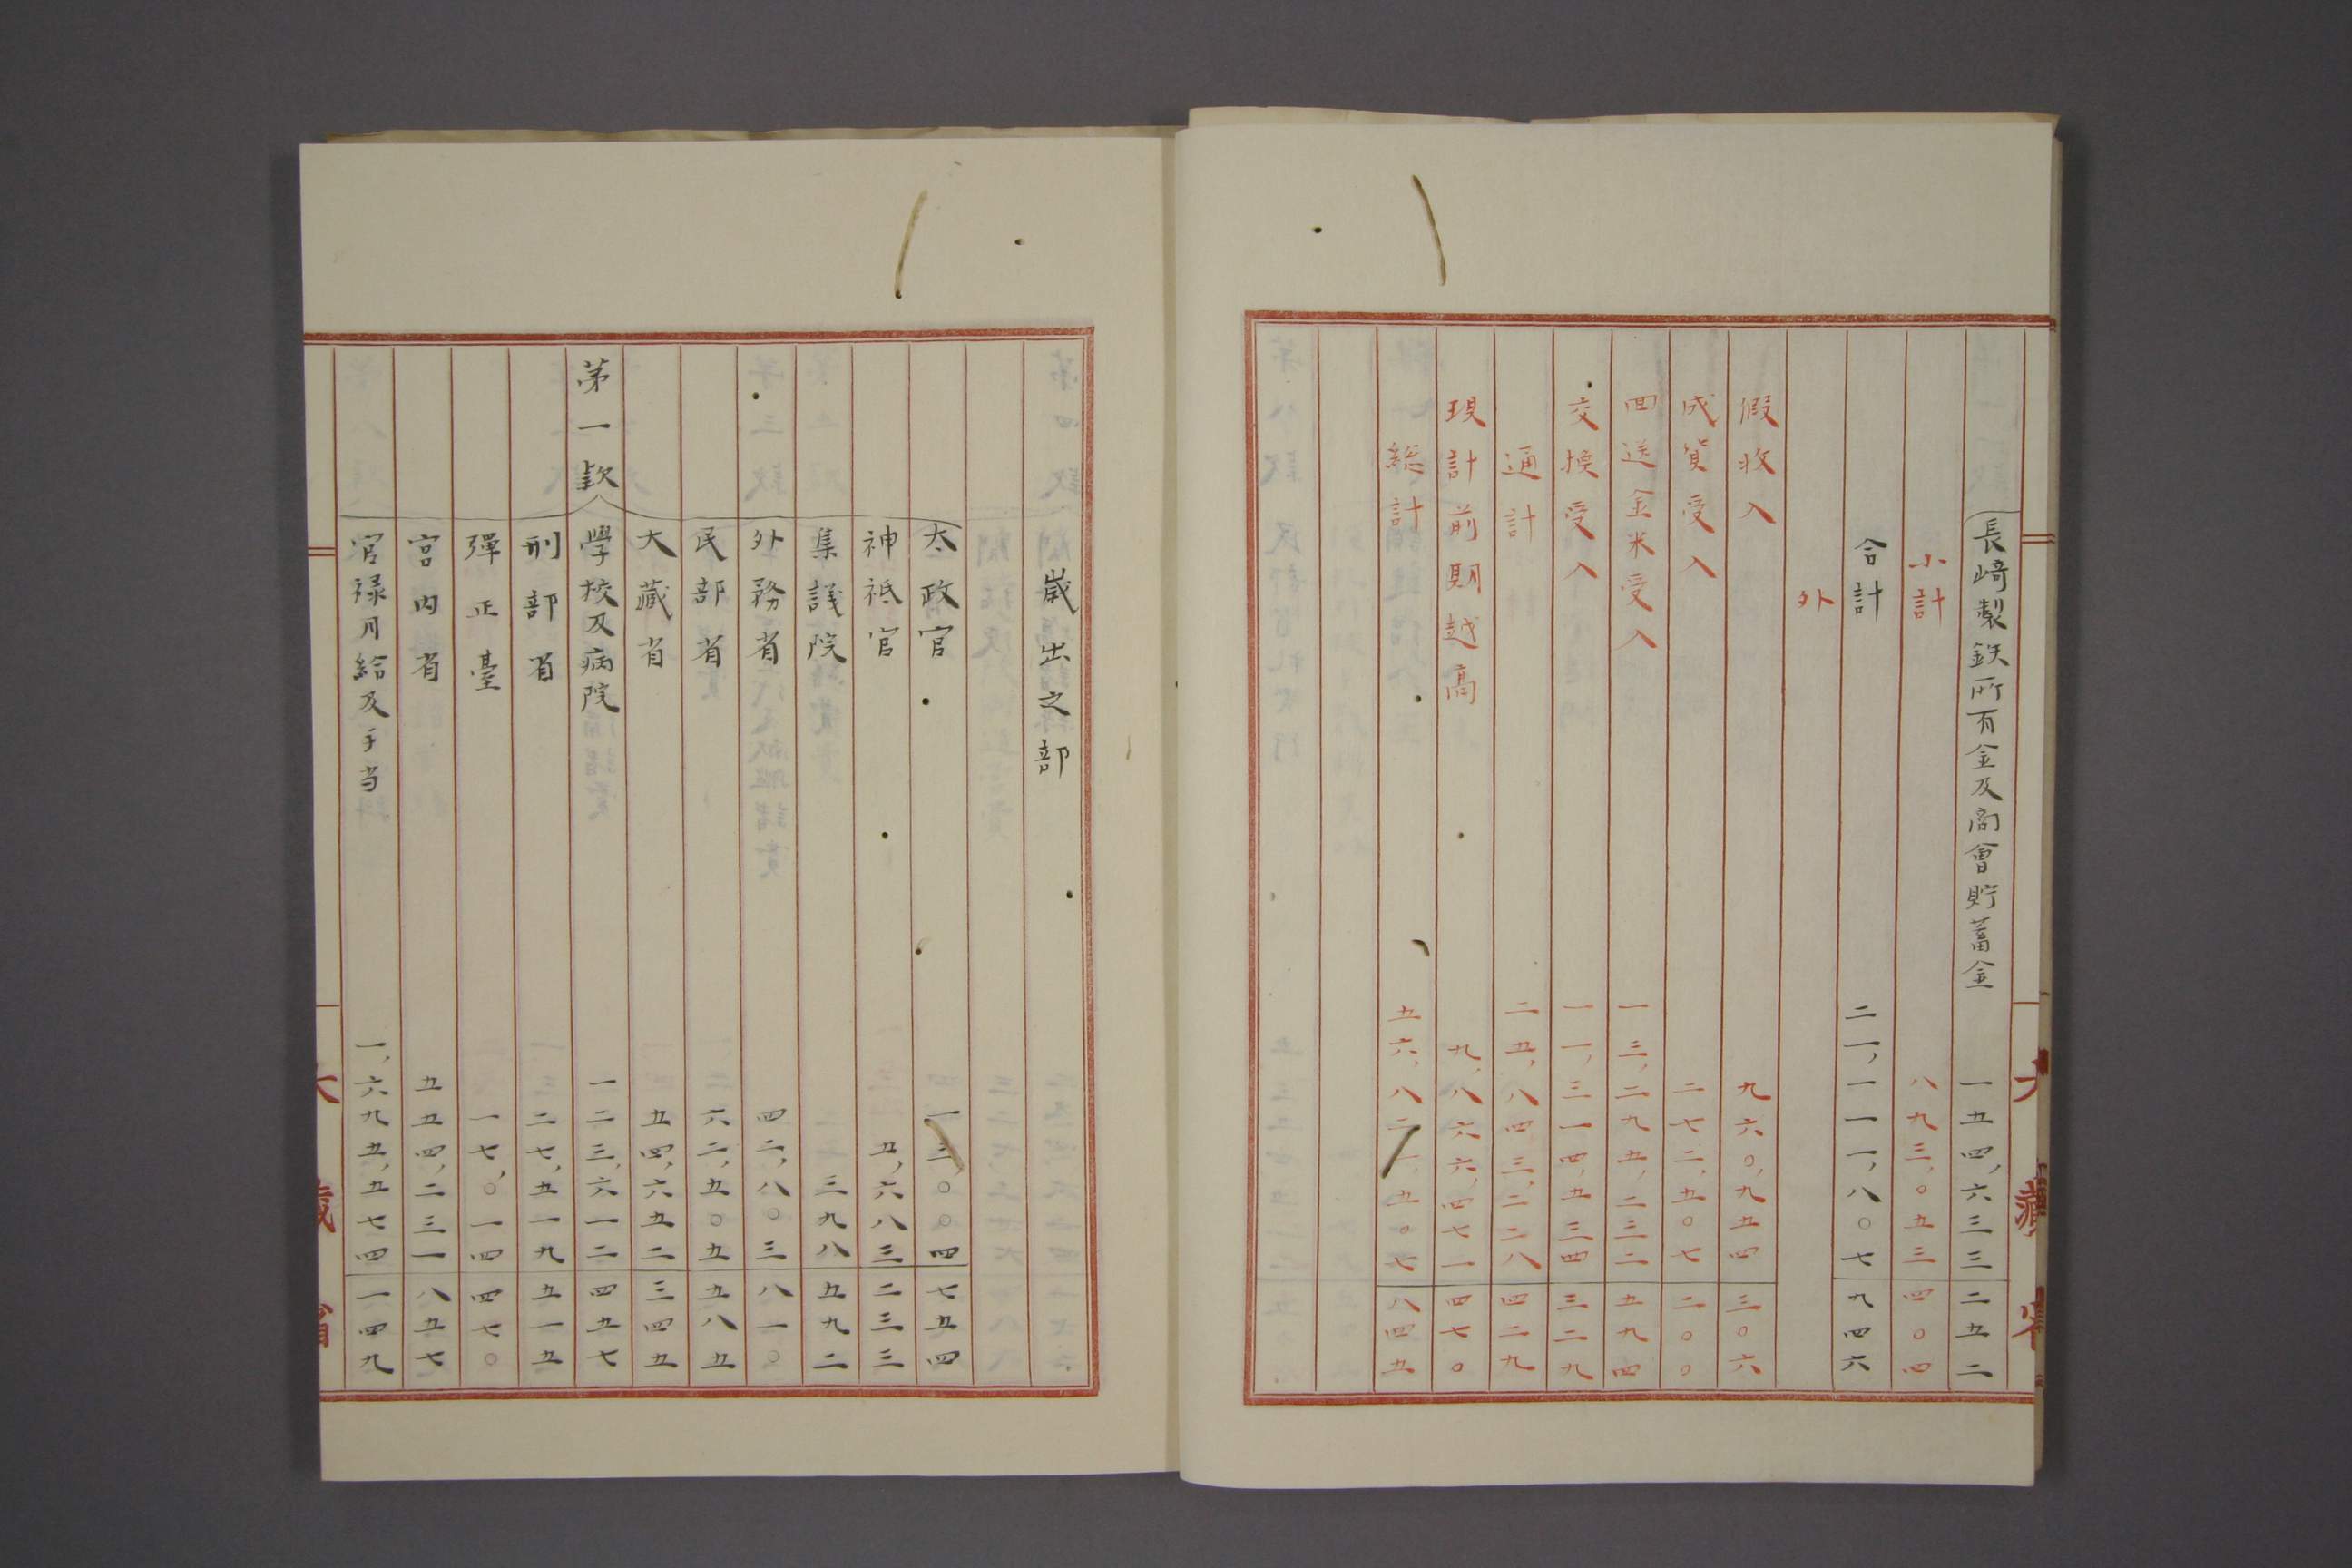 長﨑製鉄所有金及商會貯蓄金 一五四,六三三 二五二
小計 八九三,〇五三 四〇四
合計 二一,一一一,八〇七 九四六
外
假收入 九六〇,九五四 三〇六
成貨受入 二七二,五〇七 二〇〇
回送金米受入 一三,二九五,二三二 五九四
交換受入 一一,三一四,五三四 三二九
通計 二五,八四三,二二八 四二九
現計前期越高 九,八六六,四七一 四七〇
総計 五六,八二一,五〇七 八四五
歳出之部
太政官 一三,〇〇四 七五四
神祇官 五,六八三 二三三
集議院 三九八 五九二
外務省 四二,八〇三 八一〇
民部省 六二,五〇五 五八五
大藏省 五四,六五二 三四五
第一款
學校及病院 一二三,六一二 四五七
刑部省 二七,五一九 五一五
彈正臺 一七,〇一四 四七〇
宮内省 五五四,二三一 八五七
官禄月給及手当 一,六九五,五七四 一四九
大藏省